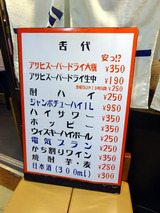 古代
安っ!?
アサヒスーパードライ大瓶 ¥350
アサヒスーパードライ生中 ¥190
酎ハイ ¥250
ジャンボチューハイL ¥980
ハイサワー ¥350
ホッピー ¥350
ウィスキーハイボール ¥250
電気ブラン ¥250
かち割りワイン ¥250
焼酎芋・麦 ¥250
日本酒(300ml) ¥300